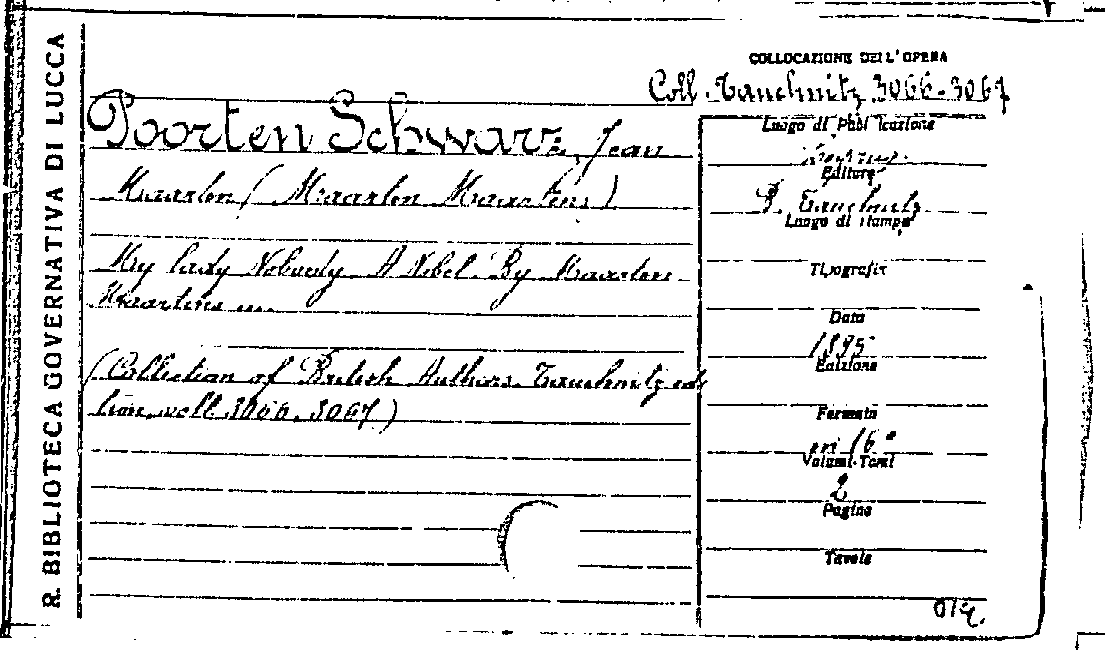 R. BIBLIOTECA GOVERNATIVA DI LUCCA
COLLOCAZIONE DELL'OPERA
Coll. Tauchnitz 3066-3067
Poorten Schwarz, Jean
Maarten (Maarten Maartens)
My lady Nobody. A Nobel. By Maarten
Maartens ...
(Collection of British Authors. Tauchnitz edi
tion voll. 3066. 3067)
Luogo di Pubblicazione
Editore
B. Tauchnitz
Luogo di stampa
Tipografia
Data
1895
Edizione
Formato
in 16°
Volumi-Tomi
2
Pagine
Tavole